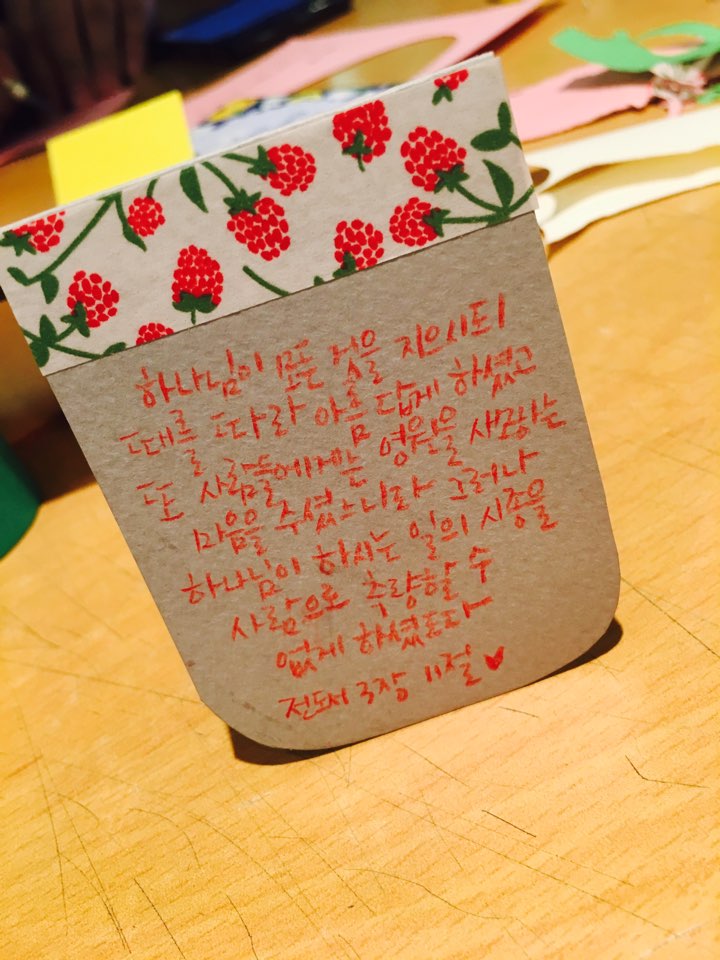 하나님이 모든 것을 지으시되
때를 따라 아름 답게 하셨고
또 사람들에게는 영원을 사모하는
마음을 주셨느니라 그러나
하나님이 하시는 일의 시종을
사람으로 측량할 수
없게 하셨도다
전도서 3장 11절 ♥